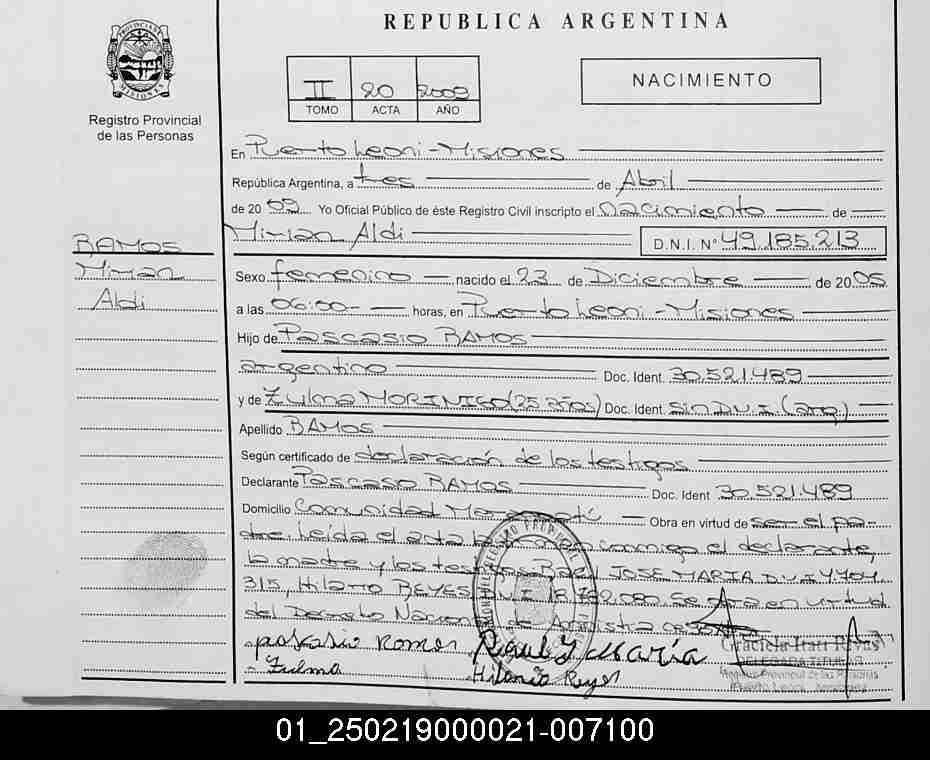 REPUBLICA ARGENTINA
PROVINCIA DE MISIONES
Registro Provincial
de las Personas
II 20 2009
TOMO ACTA AÑO
NACIMIENTO
En Puerto Leoni - Misiones
República Argentina, a tres de Abril
de 20 09 Yo Oficial Público de éste Registro Civil inscripto el nacimiento de
Mirian Aldi D.N.I. N° 49.185.213
RAMOS
Mirian
Aldi
Sexo femenino nacido el 23 de Diciembre de 20 05
a las 06:00- horas, en Puerto Leoni - Misiones
Hijo de Pascasio RAMOS
argentino Doc. Ident. 30.521.489
y de Zulma MORINIGO (25 años) Doc. Ident. Sin D.N.I (arg)
Apellido RAMOS
Según certificado de declaración de los testigos
Declarante Pascaso RAMOS Doc. Ident 30.521.489
Domicilio Comunidad Obra en virtud de ser el pa-
dre. Leída el acta la conmigo el declarante,
la madre y los testigos: JOSE MARIA D.N.I 4.704.
315, Hilario REYES D.N.I 18.782.080. Se en virtud
del Decreto
Raul J Maria
Zulma Hilario Reyes
Graciela Itatí Rivas
DELEGADA TITULAR
Registro Provincial de las Personas
Puerto Leoni - Misiones
01_250219000021-007100